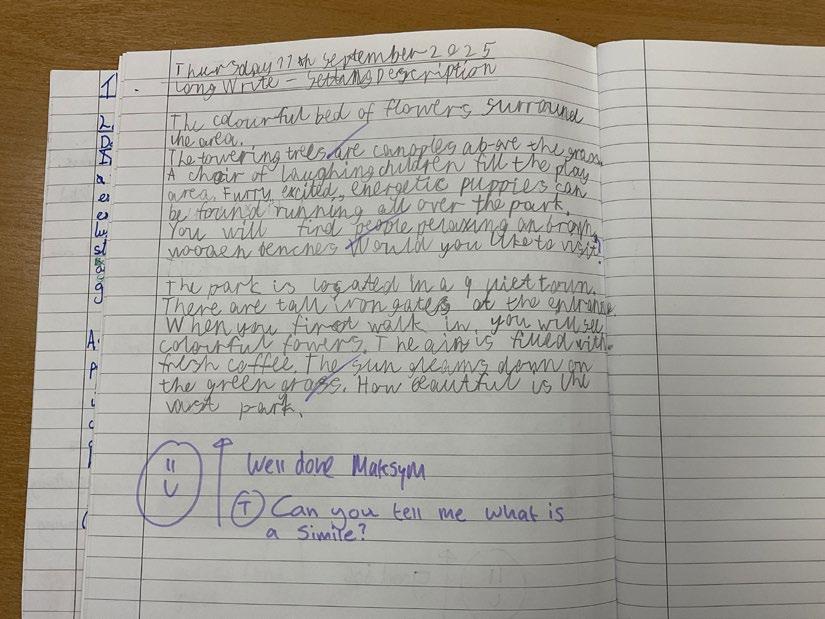 Thursday 11th September 2025
Long Write - Setting Description
The colourful bed of flowers surround
the area.
The towering trees are canopies above the grass.
A choir of laughing children fill the play
area. Furry, excited, energetic puppies can
be found running all over the park.
You will find people relaxing on brown,
wooden benches. Would you like to visit?
The park is located in a quiet town.
There are tall iron gates at the entrance.
When you first walk in, you will see
colourful fowers. The air is filled with
fresh coffee. The sun gleams down on
the green grass. How beautiful is the
vast park.
Well done Maksym
T Can you tell me what is
a simile?